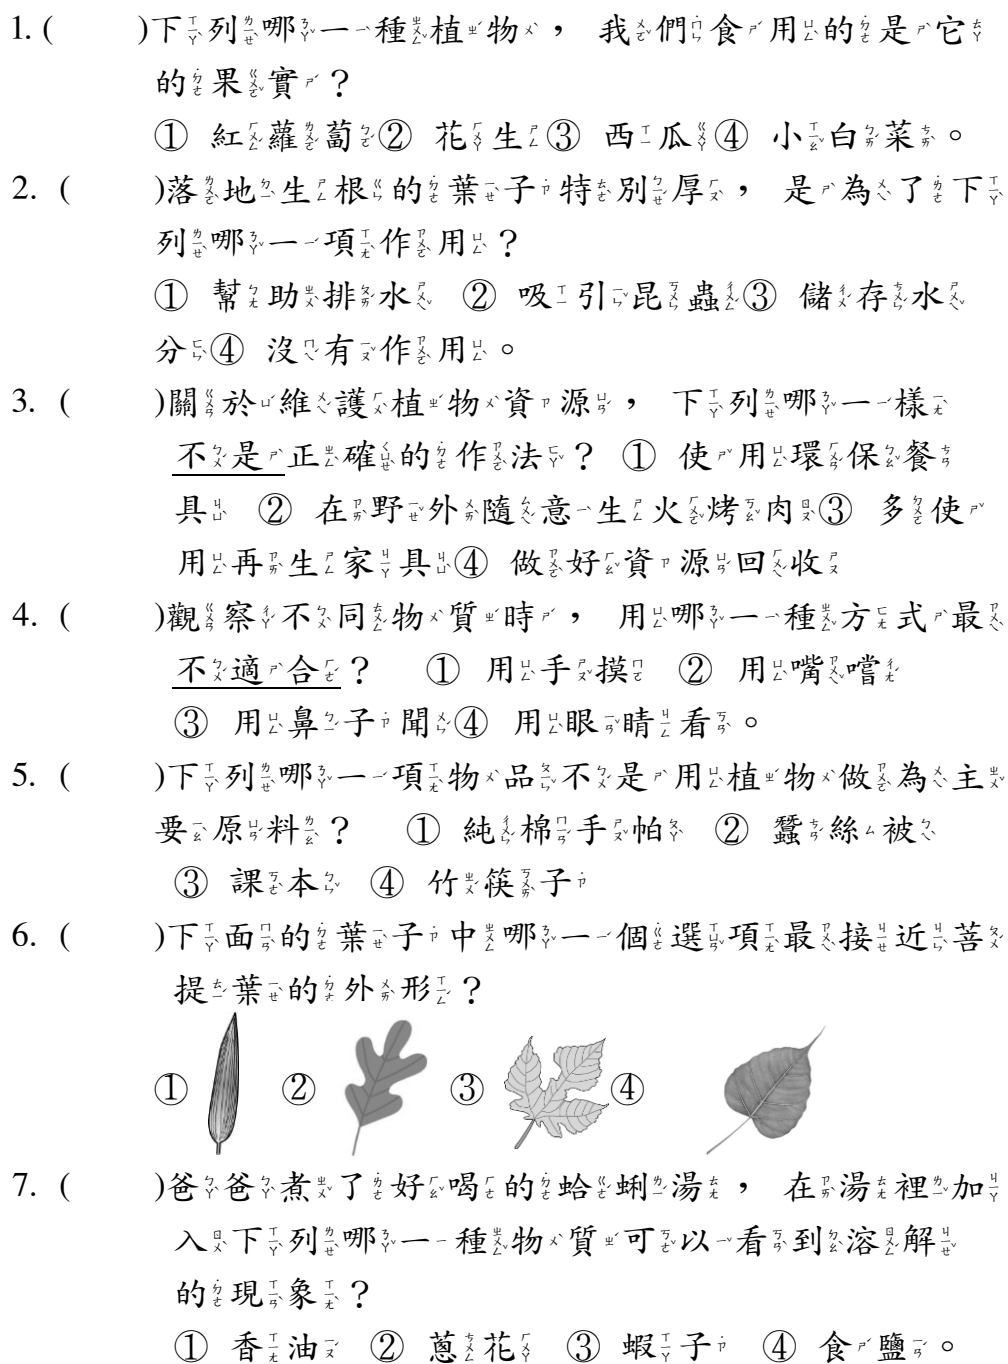 1. (　　)下列哪一種植物， 我們食用的是它
的果實？
① 紅蘿蔔② 花生③ 西瓜④ 小白菜。
2. (　　)落地生根的葉子特別厚， 是為了下
列哪一項作用？
① 幫助排水 ② 吸引昆蟲③ 儲存水
分④ 沒有作用。
3. (　　)關於維護植物資源， 下列哪一樣
不是正確的作法？ ① 使用環保餐
具 ② 在野外隨意生火烤肉③ 多使
用再生家具④ 做好資源回收
4. (　　)觀察不同物質時， 用哪一種方式最
不適合？ ① 用手摸 ② 用嘴嚐
③ 用鼻子聞④ 用眼睛看。
5. (　　)下列哪一項物品不是用植物做為主
要原料？ ① 純棉手帕 ② 蠶絲被
③ 課本 ④ 竹筷子
6. (　　)下面的葉子中哪一個選項最接近菩
提葉的外形？
① ② ③ ④
7. (　　)爸爸煮了好喝的蛤蜊湯， 在湯裡加
入下列哪一種物質可以看到溶解
的現象？
① 香油 ② 蔥花 ③ 蝦子 ④ 食鹽。